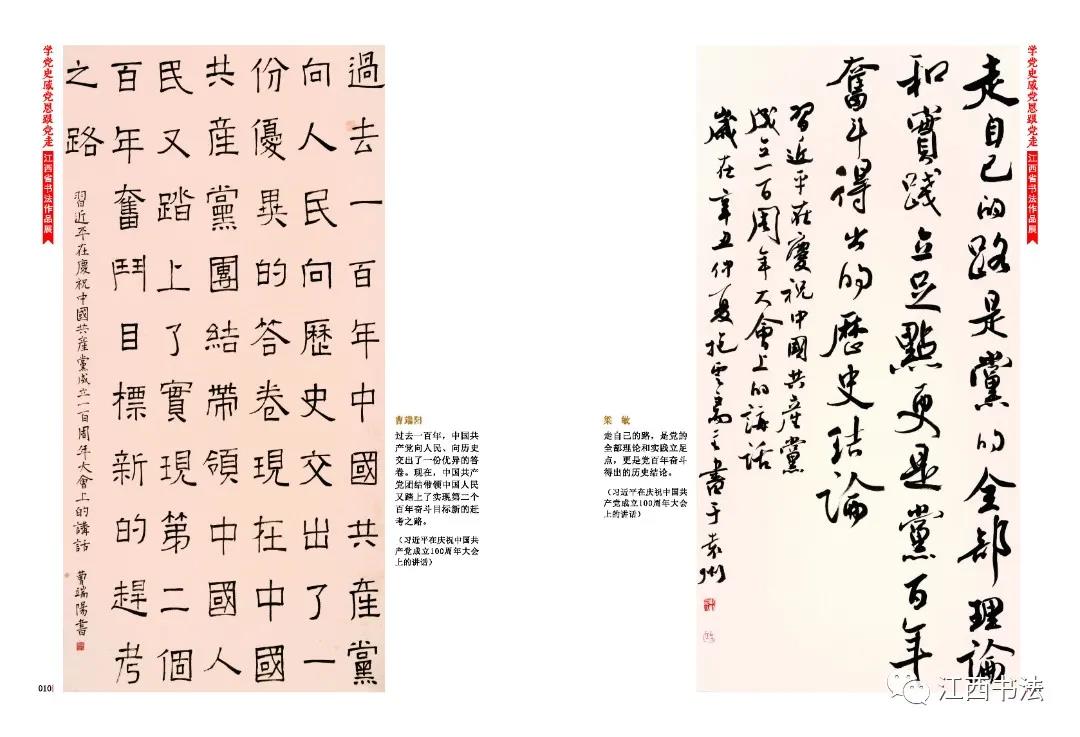 学党史感党恩跟党走
江西省书法作品展
過去一百年中國共産黨
向人民向歷史交出了一
份優異的答卷現在中國
共産黨團結帶領中國人
民又踏上了實現第二個
百年奮鬥目標新的趕考
之路
習近平在慶祝中國共産黨成立一百周年大會上的講話
曹端陽書
曹端阳
过去一百年，中国共
产党向人民、向历史
交出了一份优异的答
卷。现在，中国共产
党团结带领中国人民
又踏上了实现第二个
百年奋斗目标新的赶
考之路。
（习近平在庆祝中国共
产党成立100周年大会
上的讲话）
010
梁 敏
走自己的路，是党的
全部理论和实践立足
点，更是党百年奋斗
得出的历史结论。
（习近平在庆祝中国共
产党成立100周年大会
上的讲话）
走自己的路是黨的全部理論
和實踐立足點更是黨百年
奮斗得出的歷史結論
習近平在慶祝中國共産黨
成立一百周年大會上的講話
歲在辛丑仲夏書于袁州
学党史感党恩跟党走
江西省书法作品展
江西书法